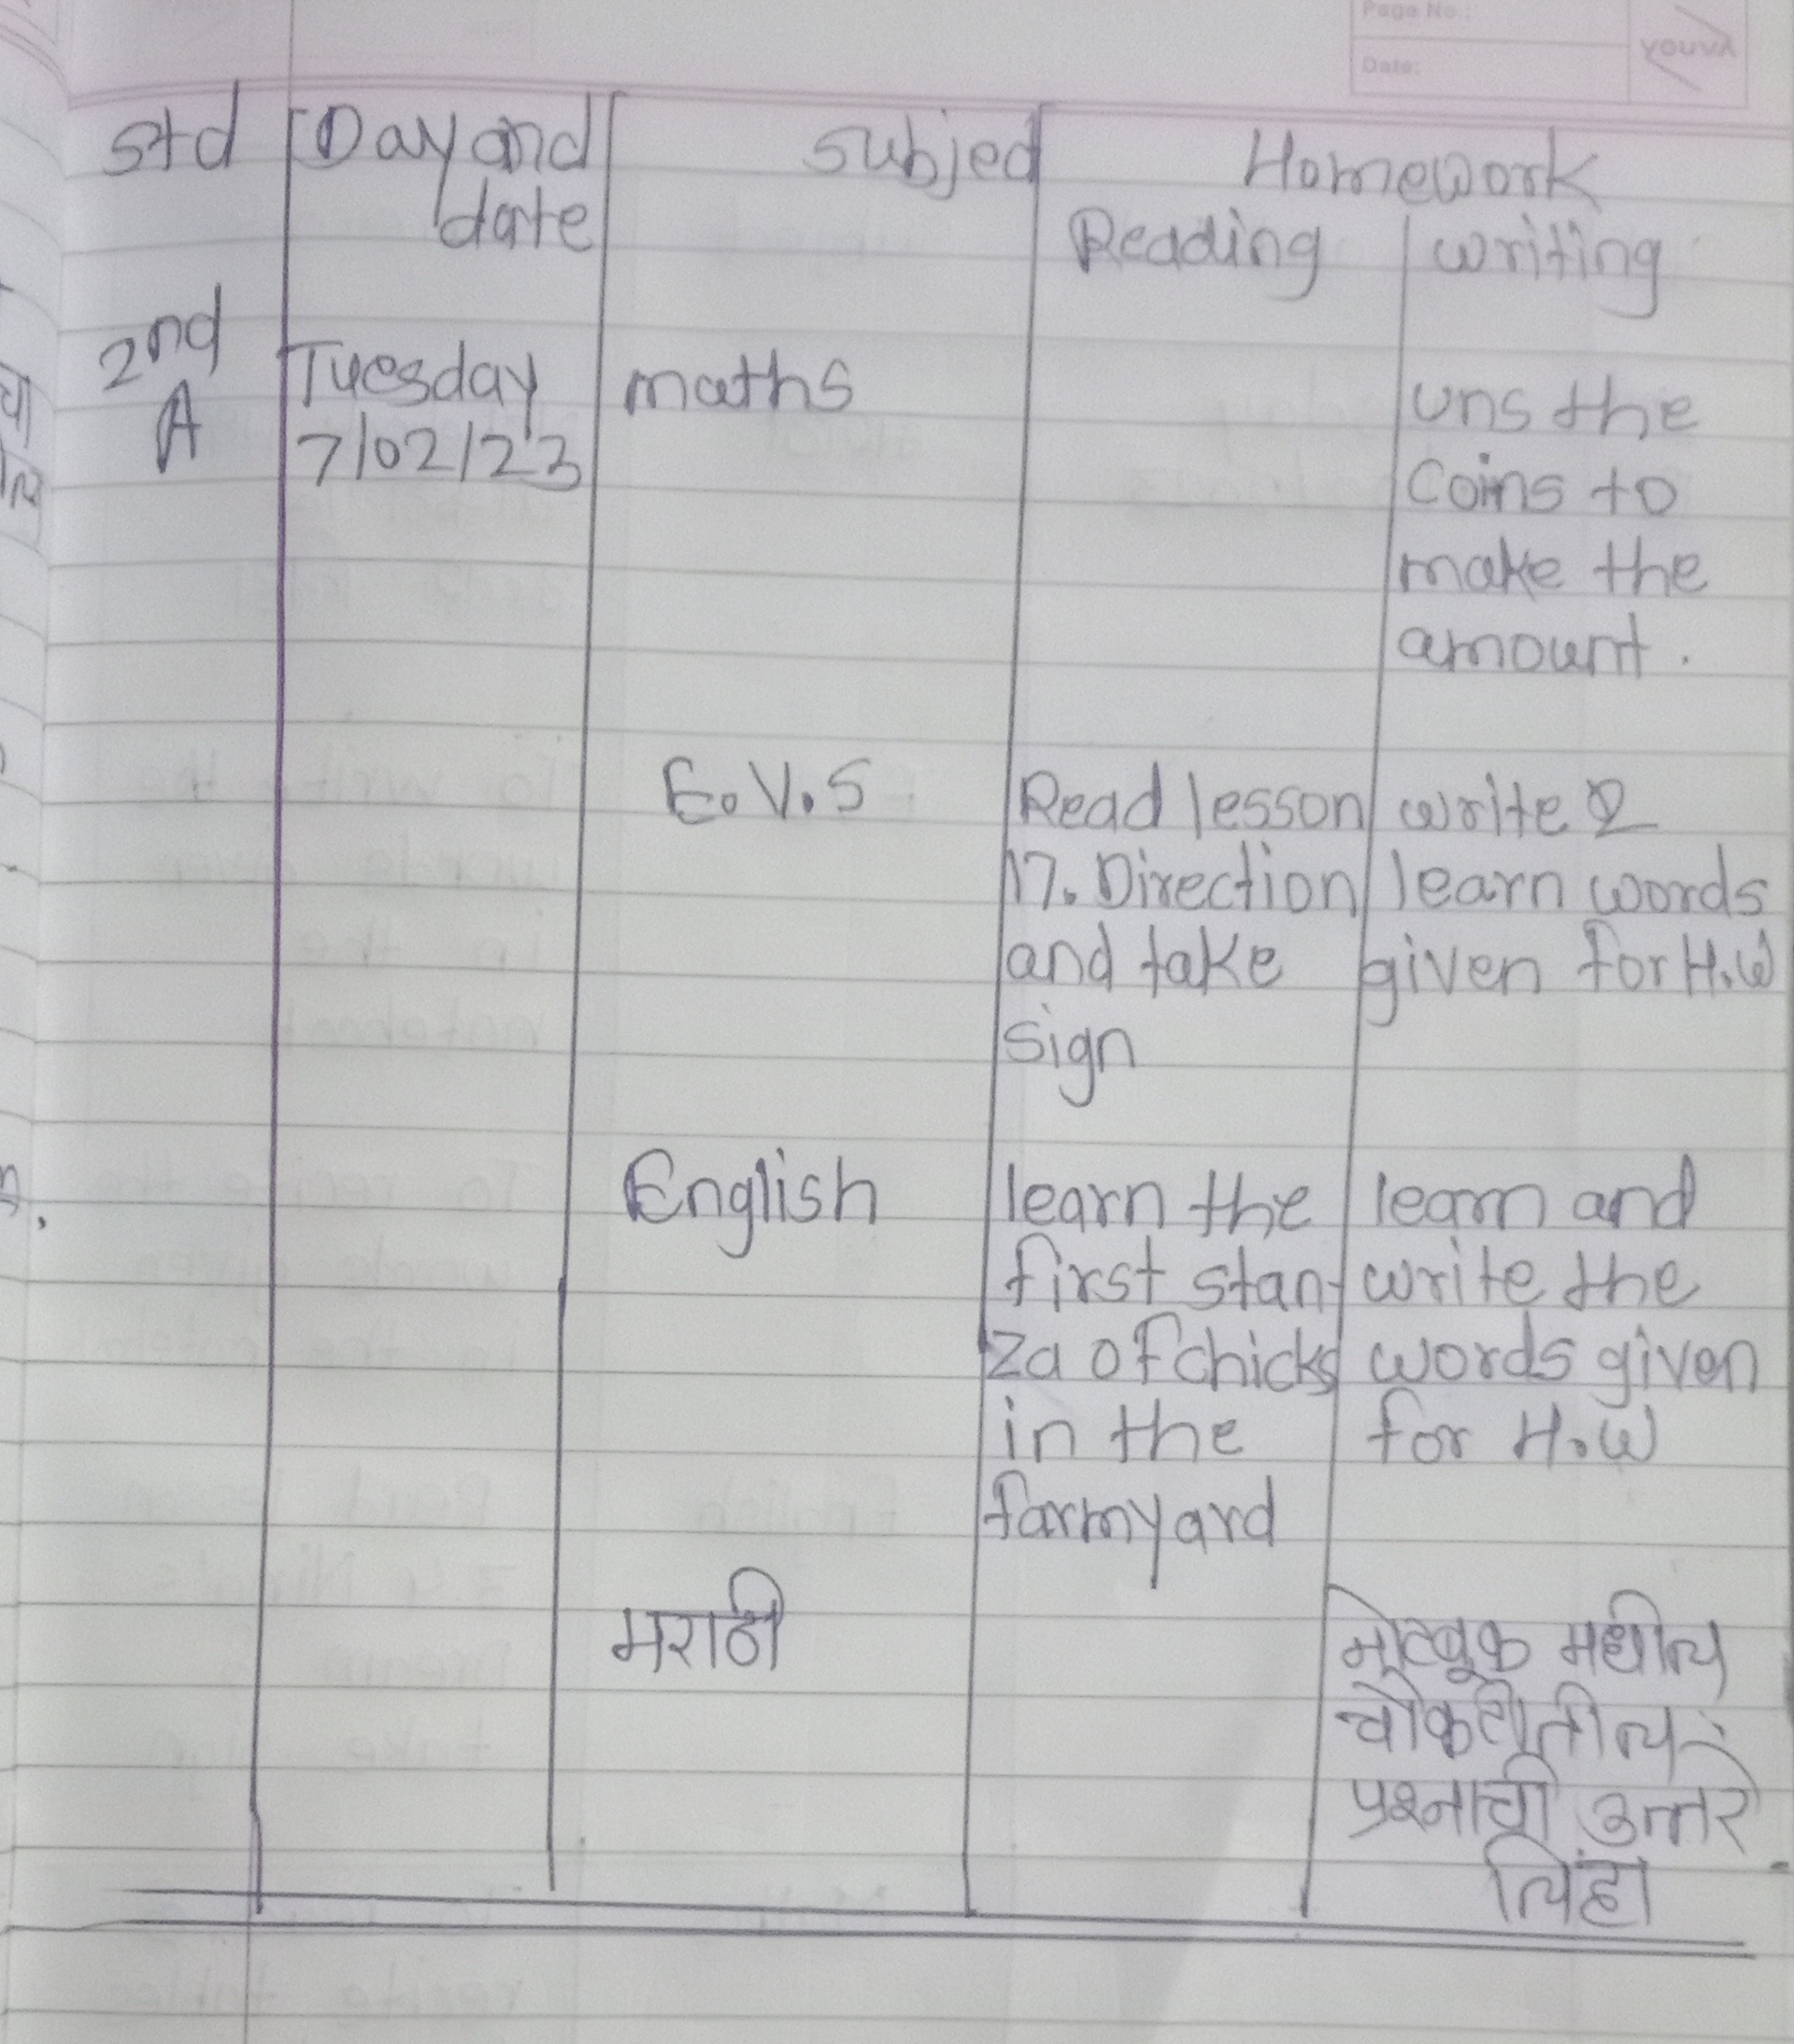 Page No.:
Date:
YOUVA
std Day and date subjed Homework
Reading writing
2nd A Tuesday 7/02/23 maths
uns the
Coins to
make the
amount.
E.V.S
Read lesson
17. Direction
and take
sign
write &
learn words
given for H.W
English
learn the
first stan-
za of chicks
in the
farmyard
learn and
write the
words given
for H.W
मराठी
नोटबूक मधील
चौकटीतील
प्रश्नाची उत्तरे
लिहा